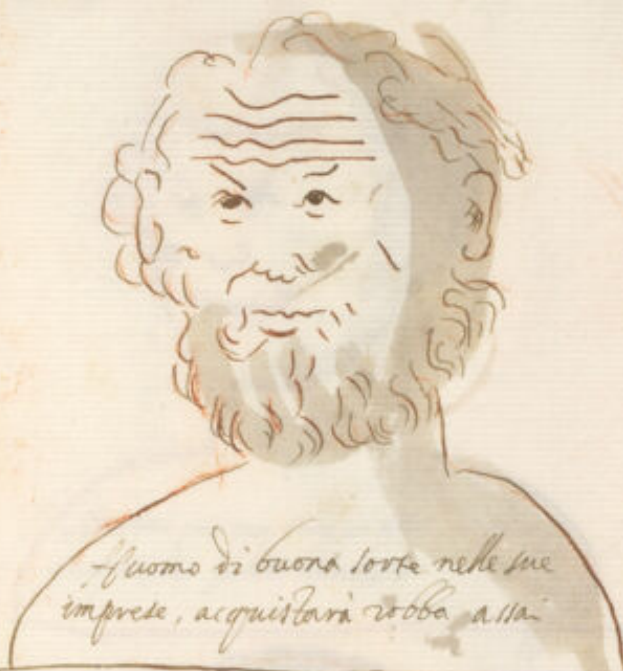 Huomo di buona sorte nelle sue
imprese, acquistarà robba assai